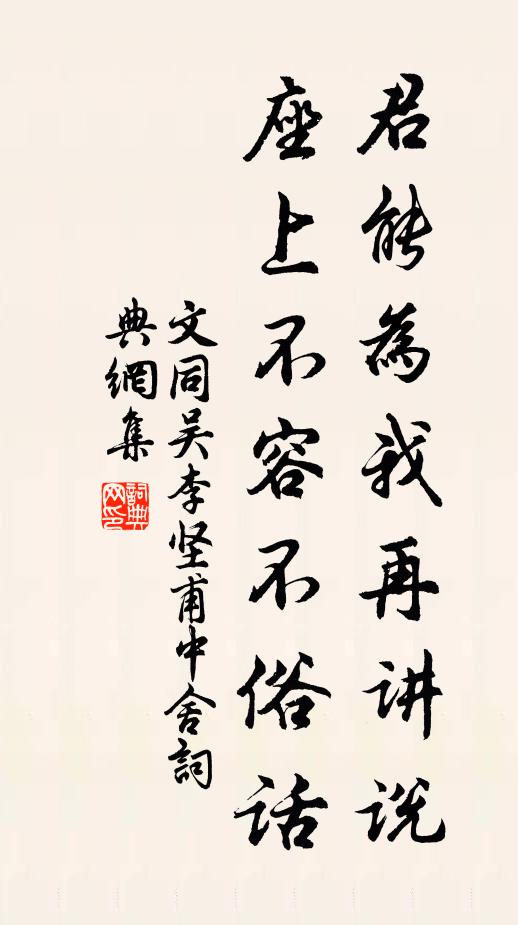 君能為我再讲说
座上不容不俗话
文同吴李坚甫中舍詞
典網集
詞典
网印